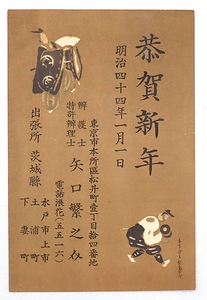 恭賀新年
明治四十四年一月一日
東京市本所區松井町壹丁目拾四番地
辯護士
特許辯理士
矢口繁之
電話浪花(五五一六)
出張所 茨城縣
水戸市上市
土浦町
下妻町